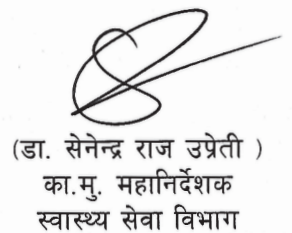 (डा. सेनेन्द्र राज उप्रेती )
का.मु. महानिर्देशक
स्वास्थ्य सेवा विभाग